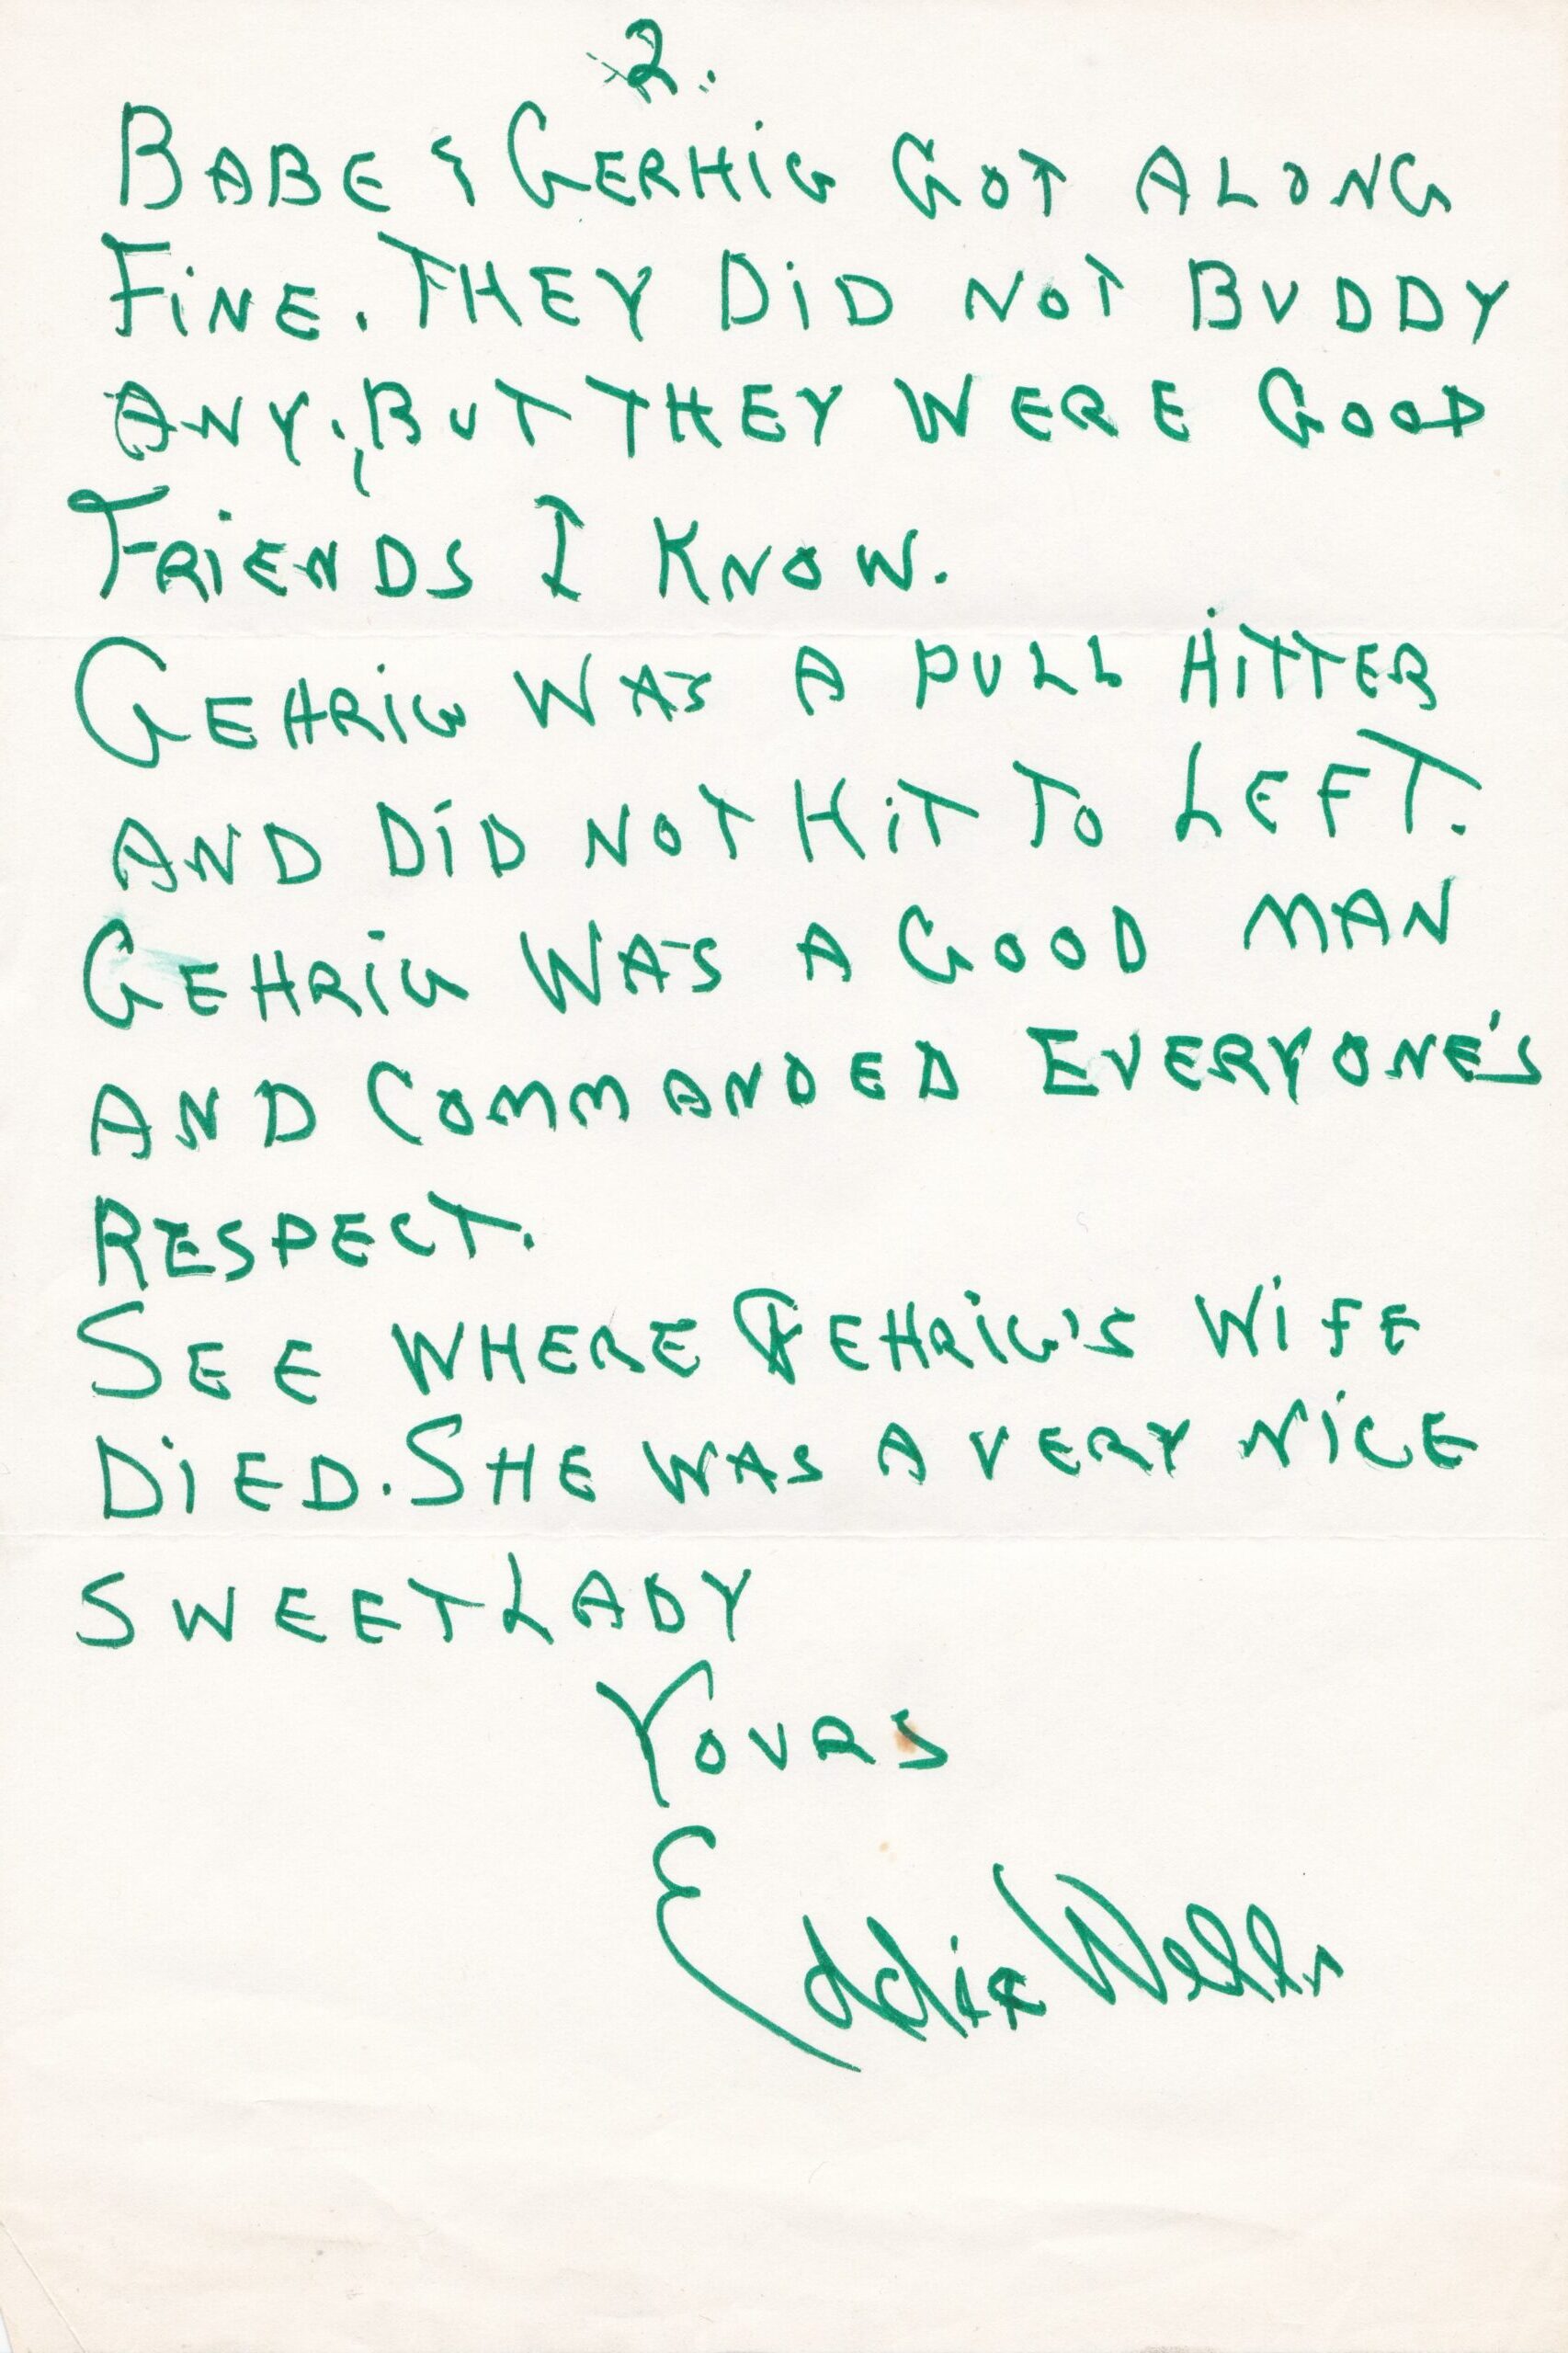 2.
BABE & GERHIG GOT ALONG
FINE. THEY DID NOT BUDDY
ANY, BUT THEY WERE GOOD
FRIENDS I KNOW.
GEHRIG WAS A PULL HITTER
AND DID NOT HIT TO LEFT.
GEHRIG WAS A GOOD MAN
AND COMMANDED EVERYONE'S
RESPECT.
SEE WHERE GEHRIG'S WIFE
DIED. SHE WAS A VERY NICE
SWEET LADY
YOURS
Eddie Wells